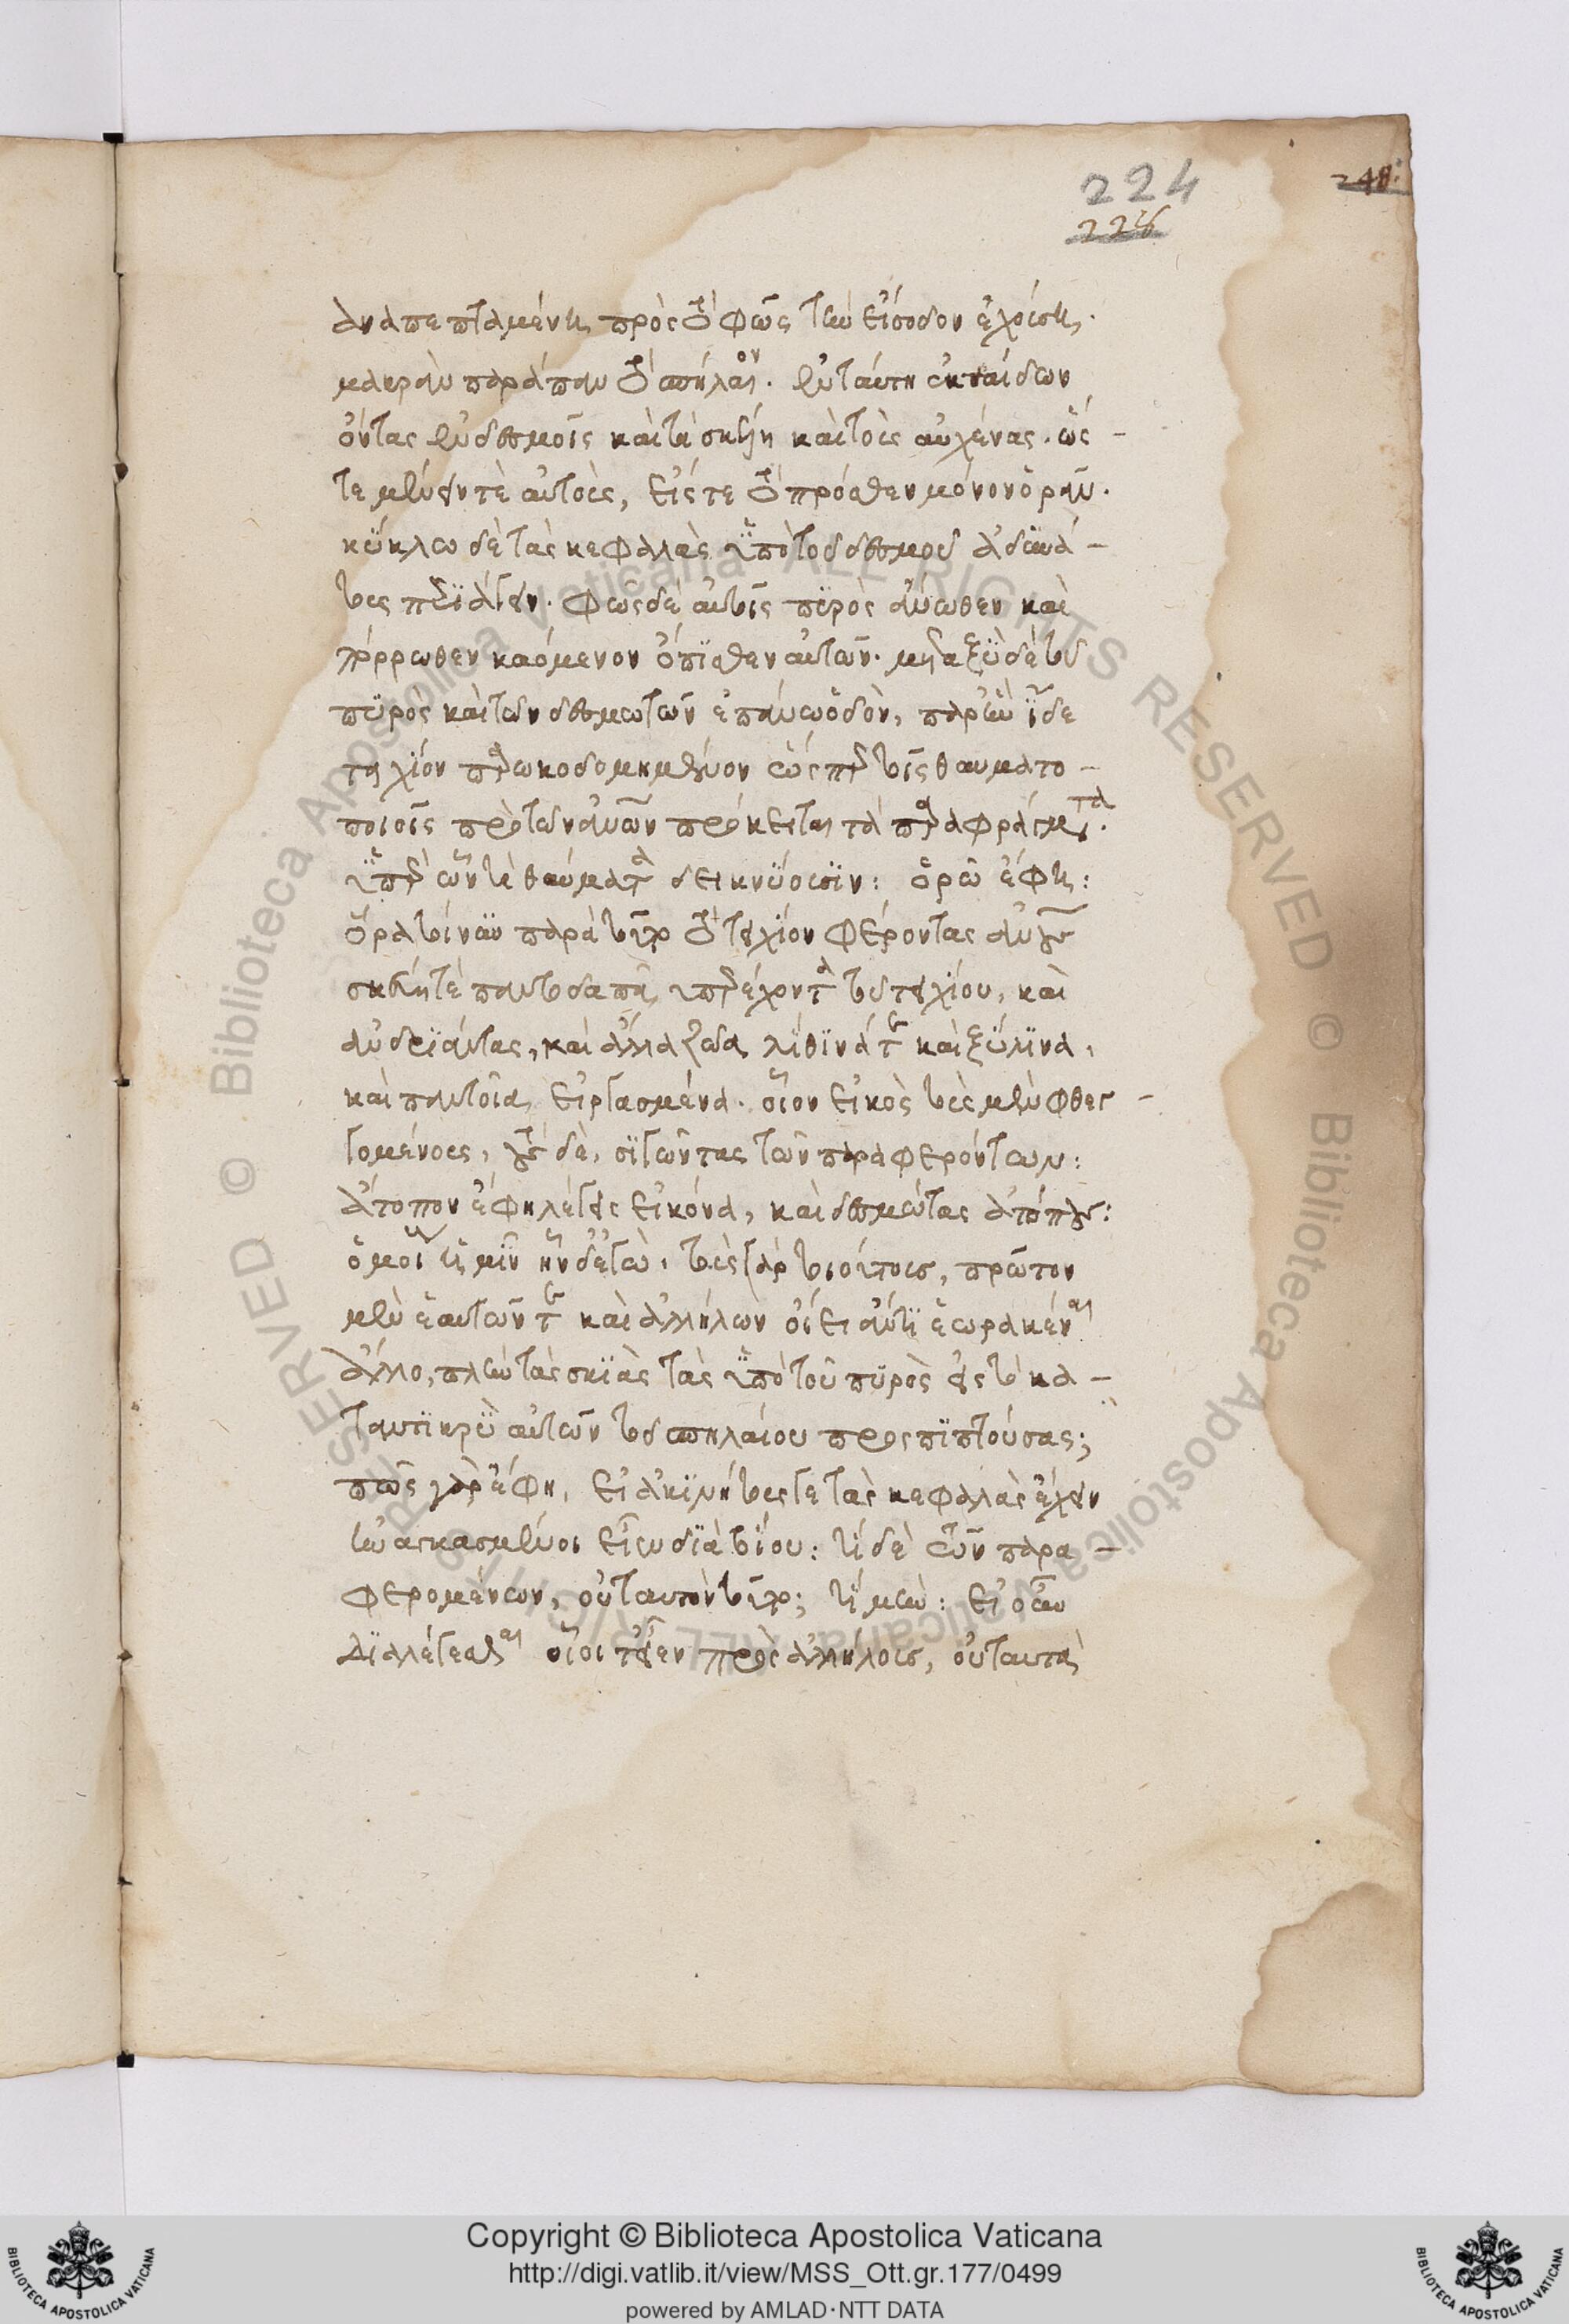 224
248
228
ἀναπεπταμένην πρὸς τὸ φῶς τὴν εἴσοδον ἐχούση,
μακρὰν παράπαν τὸ σπήλαιον. ἐν ταύτη ἐκ παίδων
ὄντας ἐν δεσμοῖς καὶ τὰ σκέλη καὶ τοὺς αὐχένας. ὥς-
τε μένειν τὲ αὐτοὺς, εἴς τε τὸ πρόσθεν μόνον ὁρᾶν.
κύκλω δὲ τὰς κεφαλὰς ὑπὸ τοῦ δεσμοῦ ἀδυνά-
τους περιάγειν. φῶς δὲ αὐτοῖς πυρὸς ἄνωθεν καὶ
πόρρωθεν καόμενον ὄπισθεν αὐτῶν. μεταξὺ δὲ τοῦ
πυρὸς καὶ τῶν δεσμωτῶν ἐπάνω ὁδὸν, παρ' ἣν ἴδε
τειχίον παρωκοδομημένον ὥσπερ τοῖς θαυματο-
ποιοῖς πρὸ τῶν ἀνων πρόκειται τὰ παραφράγματα.
ὑπὲρ ὧν τὰ θαύματα δεικνύουσιν: ὁρῶ ἔφη:
ὅρα τοίνυν παρὰ τοῦτο τὸ τειχίον φέροντας ἀνους
σκεύη τὲ παντοδαπὰ ὑπερέχοντα τοῦ τειχίου, καὶ
ἀνδριάντας, καὶ ἄλλα ζῶα λίθινά τε καὶ ξύλινα,
καὶ παντοῖα εἰργασμένα. οἷον εἰκὸς τοὺς μὲν φθεγ-
γομένους, τοὺς δὲ, σιγῶντας τῶν παραφερόντων:
ἄτοπον ἔφη λέγεις εἰκόνα, καὶ δεσμώτας ἀτόπους:
ὁμοίους ἡμῖν ἦν δ' ἐγώ. τοὺς γὰρ τοιούτους, πρῶτον
μὲν ἑαυτῶν τε καὶ ἀλλήλων οἴει ἄν τι ἑωρακέναι
ἄλλο, πλὴν τὰς σκιὰς τὰς ὑπὸ τοῦ πυρὸς εἰς τὸ κα-
ταντικρὺ αὐτῶν τοῦ σπηλαίου προσπιπτούσας;
πῶς γὰρ ἔφη, εἰ ἀκινήτους γε τὰς κεφαλὰς ἔχειν
ἠναγκασμένοι εἶεν διὰ βίου: τί δὲ τῶν παρα-
φερομένων, οὐ ταυτὸν τοῦτο; τί μήν: εἰ οὖν
διαλέγεσθαι οἷοί τ' εἶεν πρὸς ἀλλήλους, οὐ ταυτὰ
Copyright © Biblioteca Apostolica Vaticana
http://digi.vatlib.it/view/MSS_Ott.gr.177/0499
powered by AMLAD·NTT DATA
BIBLIOTECA APOSTOLICA VATICANA
BIBLIOTECA APOSTOLICA VATICANA
© Biblioteca Apostolica Vaticana ALL RIGHTS RESERVED
© Biblioteca Apostolica Vaticana ALL RIGHTS RESERVED